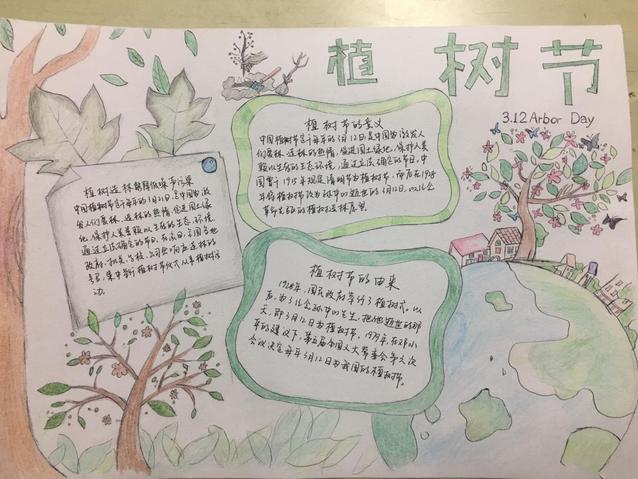 植树节
3.12 Arbor Day
植树节的意义
中国植树节定于每年的3月12日,是中国为激发人
们爱林、造林的热情,促进国土绿化,保护人类
赖以生存的生态环境,通过立法确定的节日,中
国曾于1915年规定清明节为植树节,而后在1928
年将植树节改为孙中山逝世的3月12日,以纪念
植树造林
中国植树节定于每年的3月12日,是中国为激
发人们爱林、造林的热情,促进国土绿
化,保护人类赖以生存的生态环境
通过立法确定的节日,在该日,全国各地
政府、机关、学校、公司会响应造林的
号召,集中举行植树节仪式从事植树活
动。
植树节的由来
1928年,国民政府举行了植树式,以
后,为了纪念孙中山先生,把他逝世的那
天,即3月12日为植树节。1979年,在邓小
平的建议下,第五届全国人大常委会第六次
会议决定每年3月12日为我国的植树节。